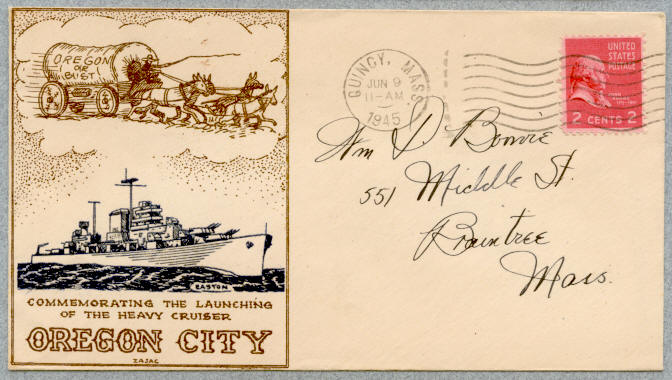 OREGON
OR
BUST!
EASTON
COMMEMORATING THE LAUNCHING
OF THE HEAVY CRUISER
OREGON CITY
ZAJAC
QUINCY, MASS.
JUN 9
11-AM
1945
UNITED
STATES
POSTAGE
JOHN
ADAMS
2 CENTS 2
Wm J. Bowie
551 Middle St.
Braintree
Mass.